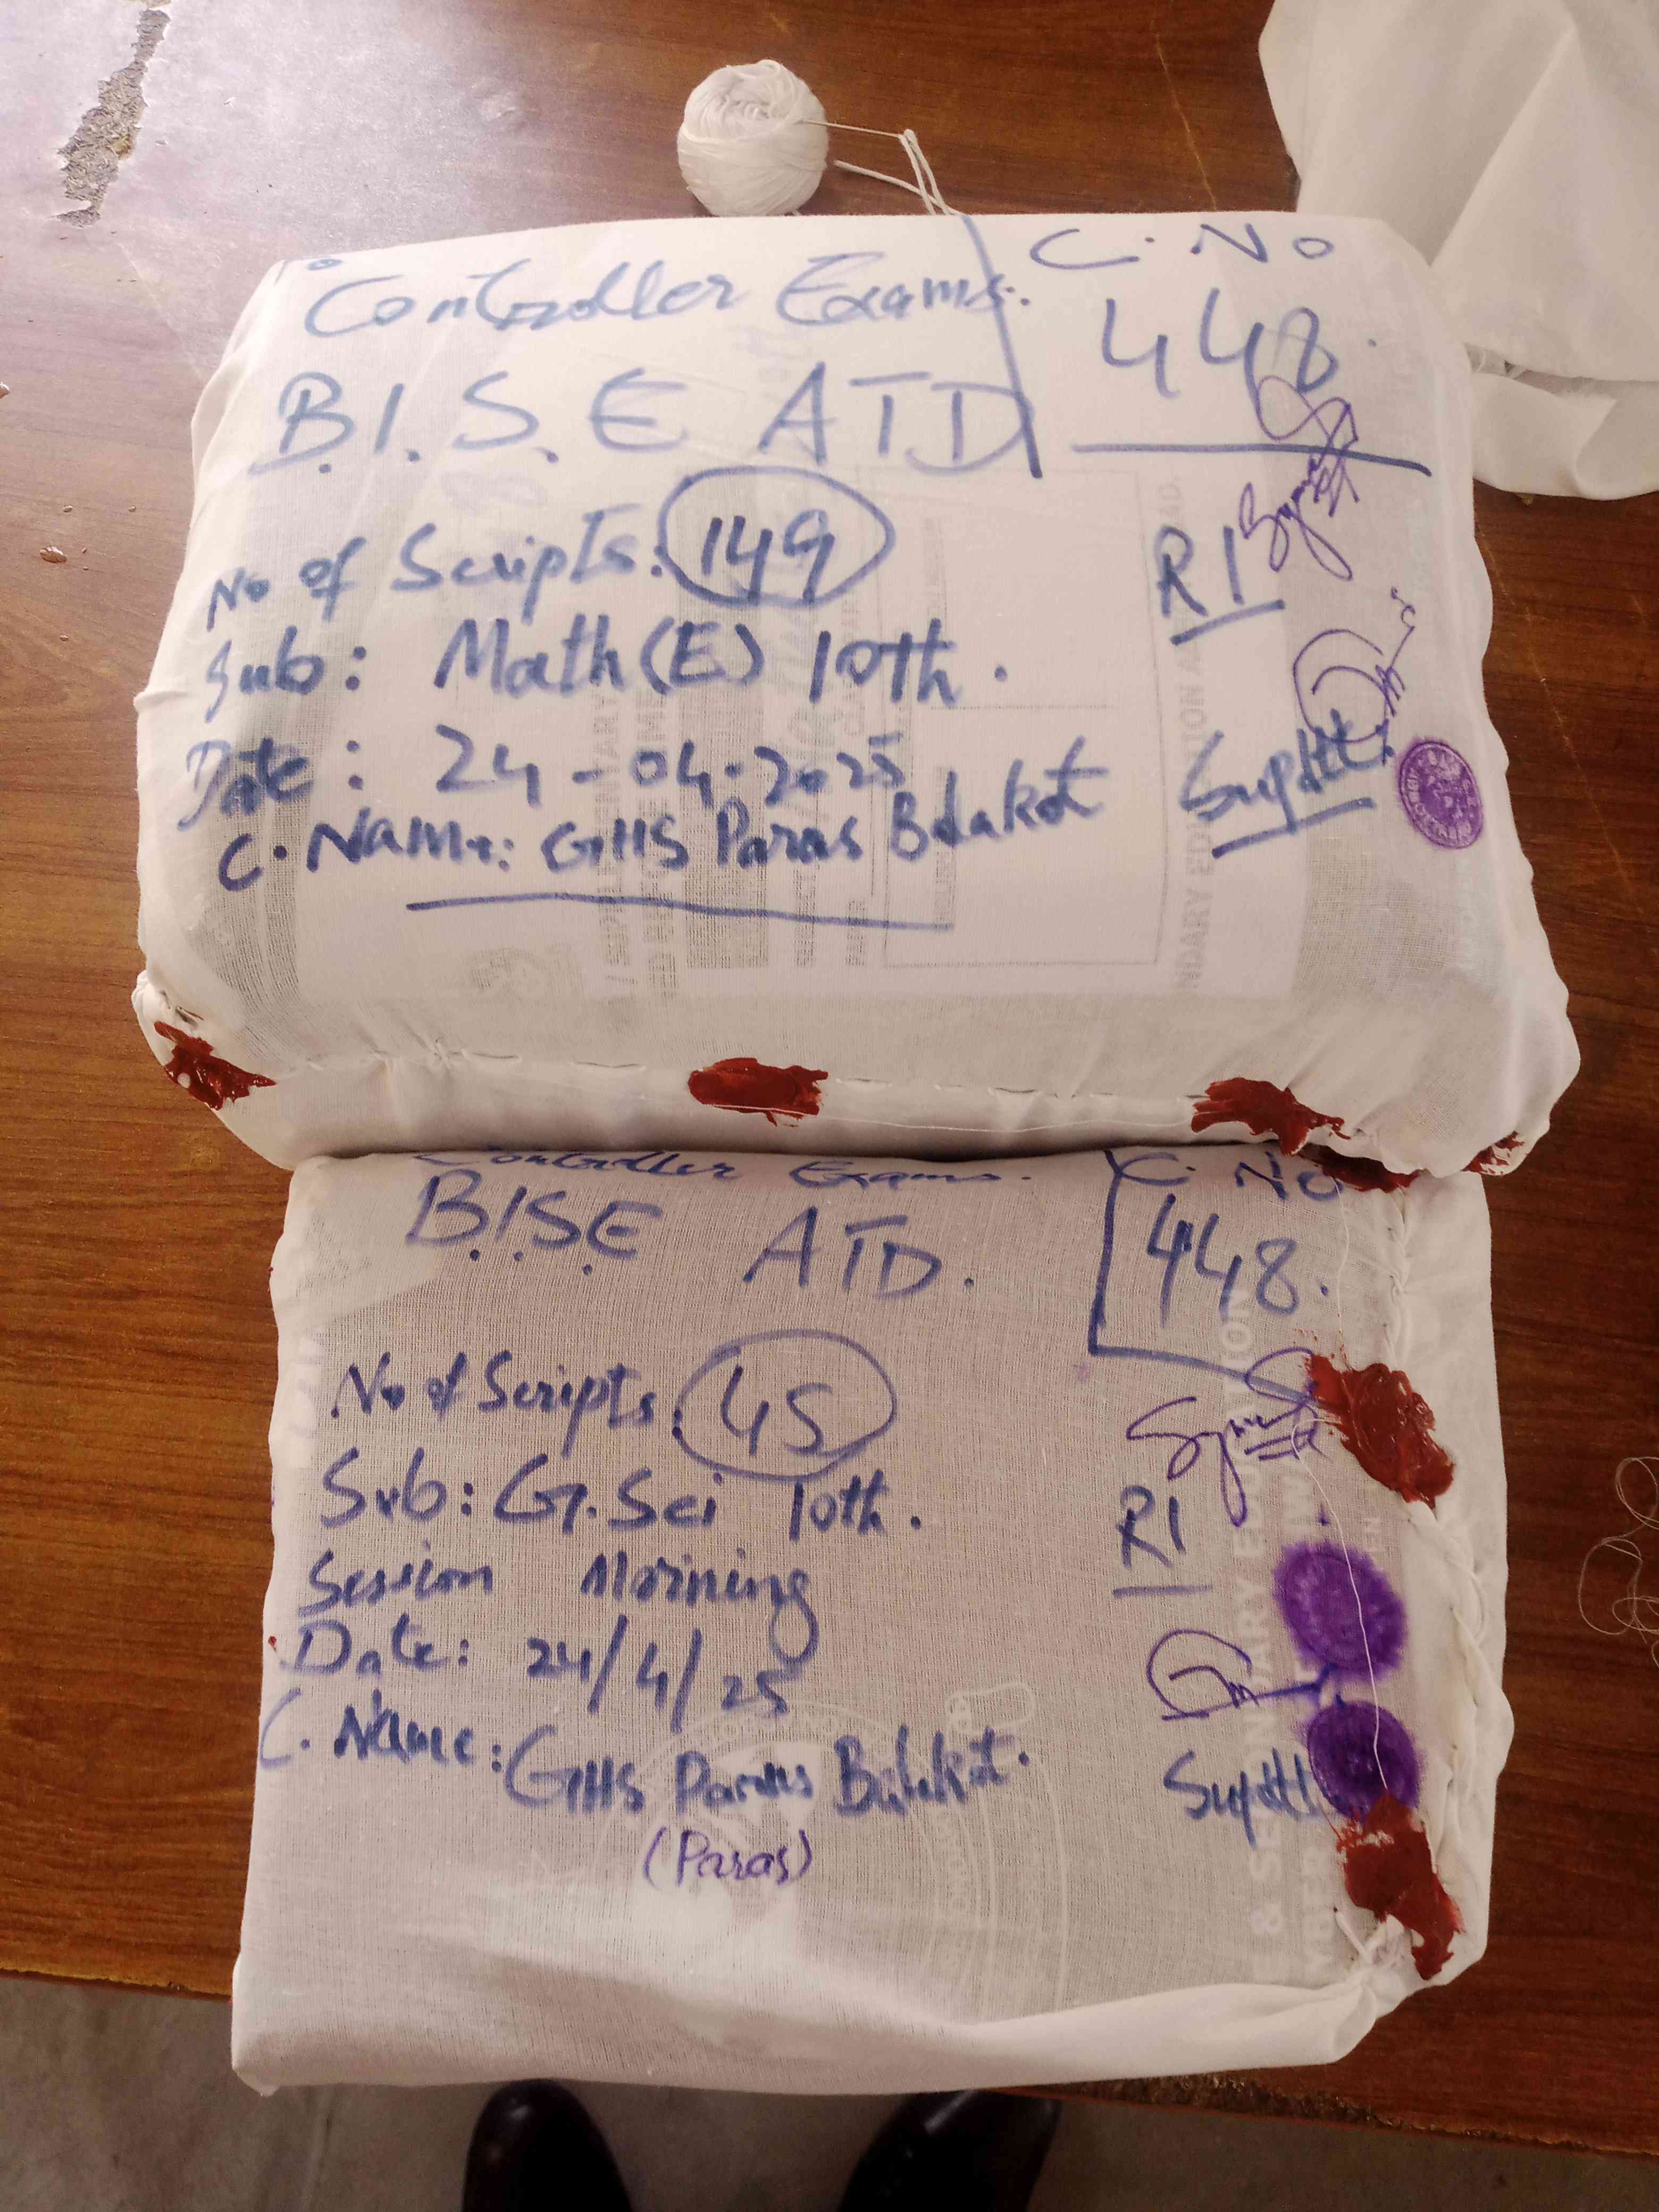 C. No
Controller Exams.
448.
B.I.S.E ATD
No of Scripts: 149
R1
Sub: Math (E) 10th.
Date: 24-04-2025
Supdtt
C. Name: GHS Paras Balakot
Controller Exams.
C. No
B.I.S.E ATD.
448.
No of Scripts: 45
Sub: G.Sci 10th.
R1
Session Morning
Date: 24/4/25
C. Name: GHS Paras Balakot.
Supdtt
(Paras)